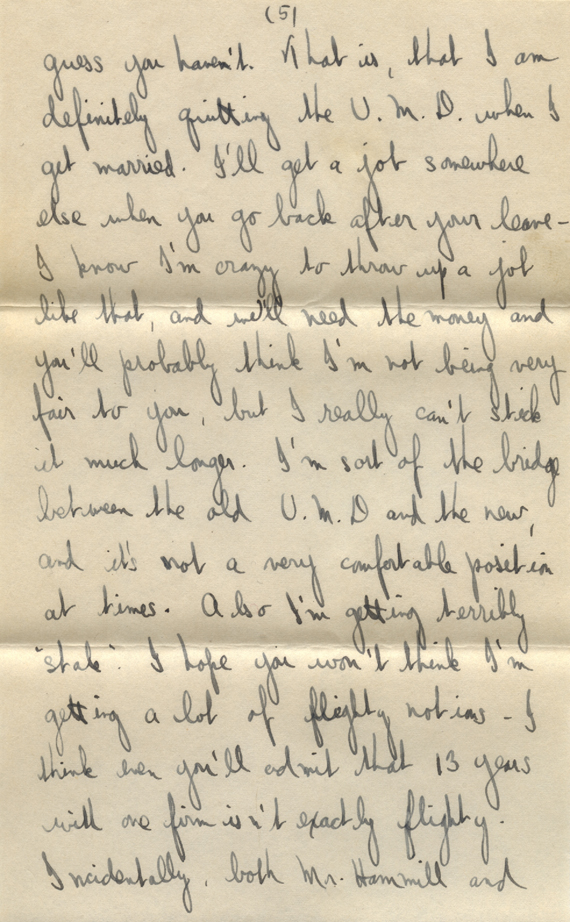 (5)
guess you haven't. That is, that I am
definitely quitting the U. M. D. when I
get married. I'll get a job somewhere
else when you go back after your leave -
I know I'm crazy to throw up a job
like that, and we'll need the money and
you'll probably think I'm not being very
fair to you, but I really can't stick
it much longer. I'm sort of the bridge
between the old U. M. D and the new,
and it's not a very comfortable position
at times. Also I'm getting terribly
"stale". I hope you won't think I'm
getting a lot of flighty notions - I
think even you'll admit that 13 years
with one firm isn't exactly flighty.
Incidentally, both Mr. Hammill and